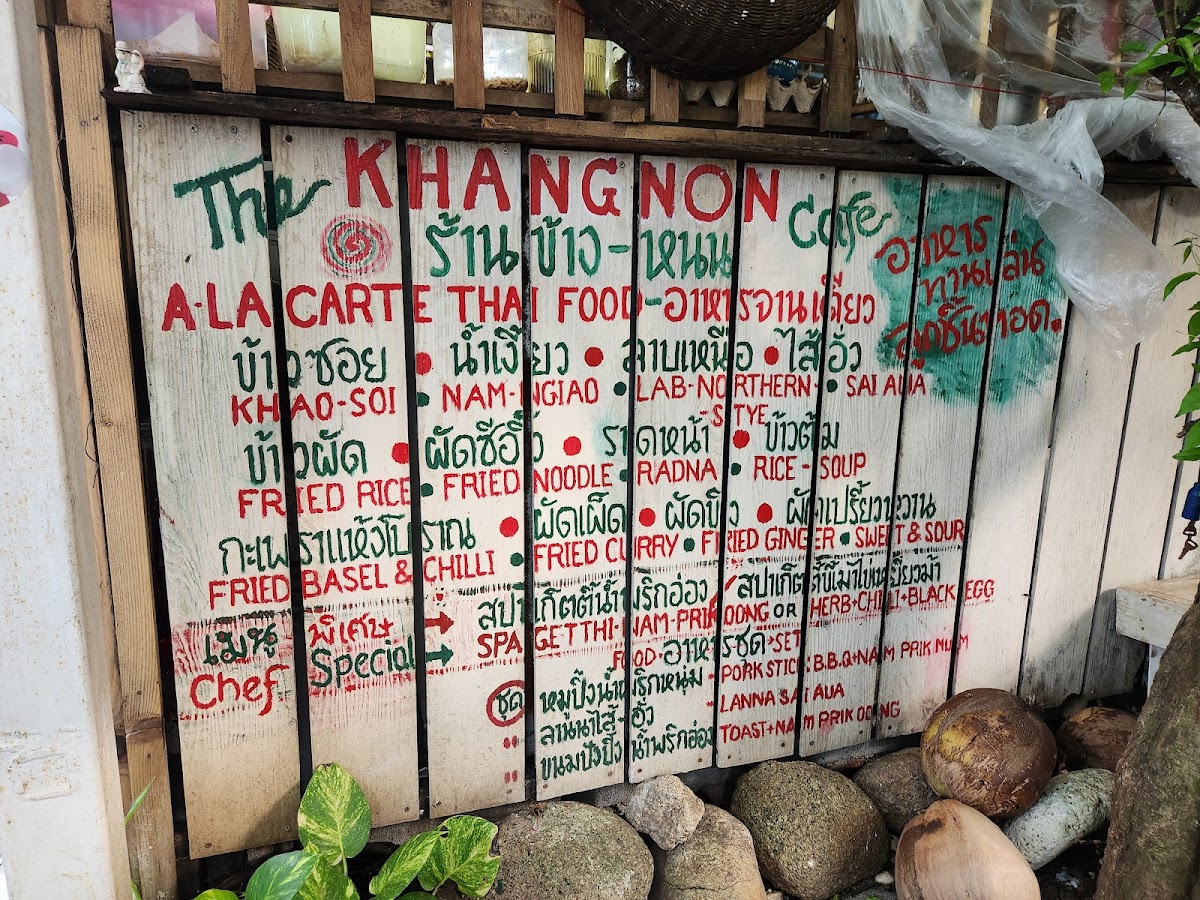 The KHANGNON Cafe
ร้าน ข้าง-หนน
อาหาร
ทานเล่น
ลูกชิ้นทอด.
A-LA CARTE THAI FOOD-อาหารจานเดียว
ข้าวซอย • น้ำเงี้ยว • ลาบเหนือ • ไส้อั่ว
KHAO-SOI • NAM-NGIAO • LAB-NORTHERN- • SAI AUA
STYE
ข้าวผัด • ผัดซีอิ๊ว • ราดหน้า • ข้าวต้ม
FRIED RICE • FRIED NOODLE • RADNA • RICE-SOUP
กะเพราแห้งโบราณ • ผัดเผ็ด • ผัดขิง • ผัดเปรี้ยวหวาน
FRIED BASEL & CHILLI • FRIED CURRY • FRIED GINGER • SWEET & SOUR
เมนู พิเศษ → สปาเกิตตี้น้ำพริกอ่อง / สปาเกิตตี้ขี้เมาไข่เยี่ยวม้า
SPAGETTHI-NAM-PRIK OONG OR HERB+CHILLI+BLACK EGG
Chef Special →
FOOD-อาหารชุด+SET
ชุด หมูปิ้งน้ำพริกหนุ่ม - PORK STICK: B.B.Q+NAM PRIK NUM
ลานนาไส้-อั่ว LANNA SAI AUA
ขนมปังปิ้งน้ำพริกอ่อง TOAST+NAM PRIK OONG